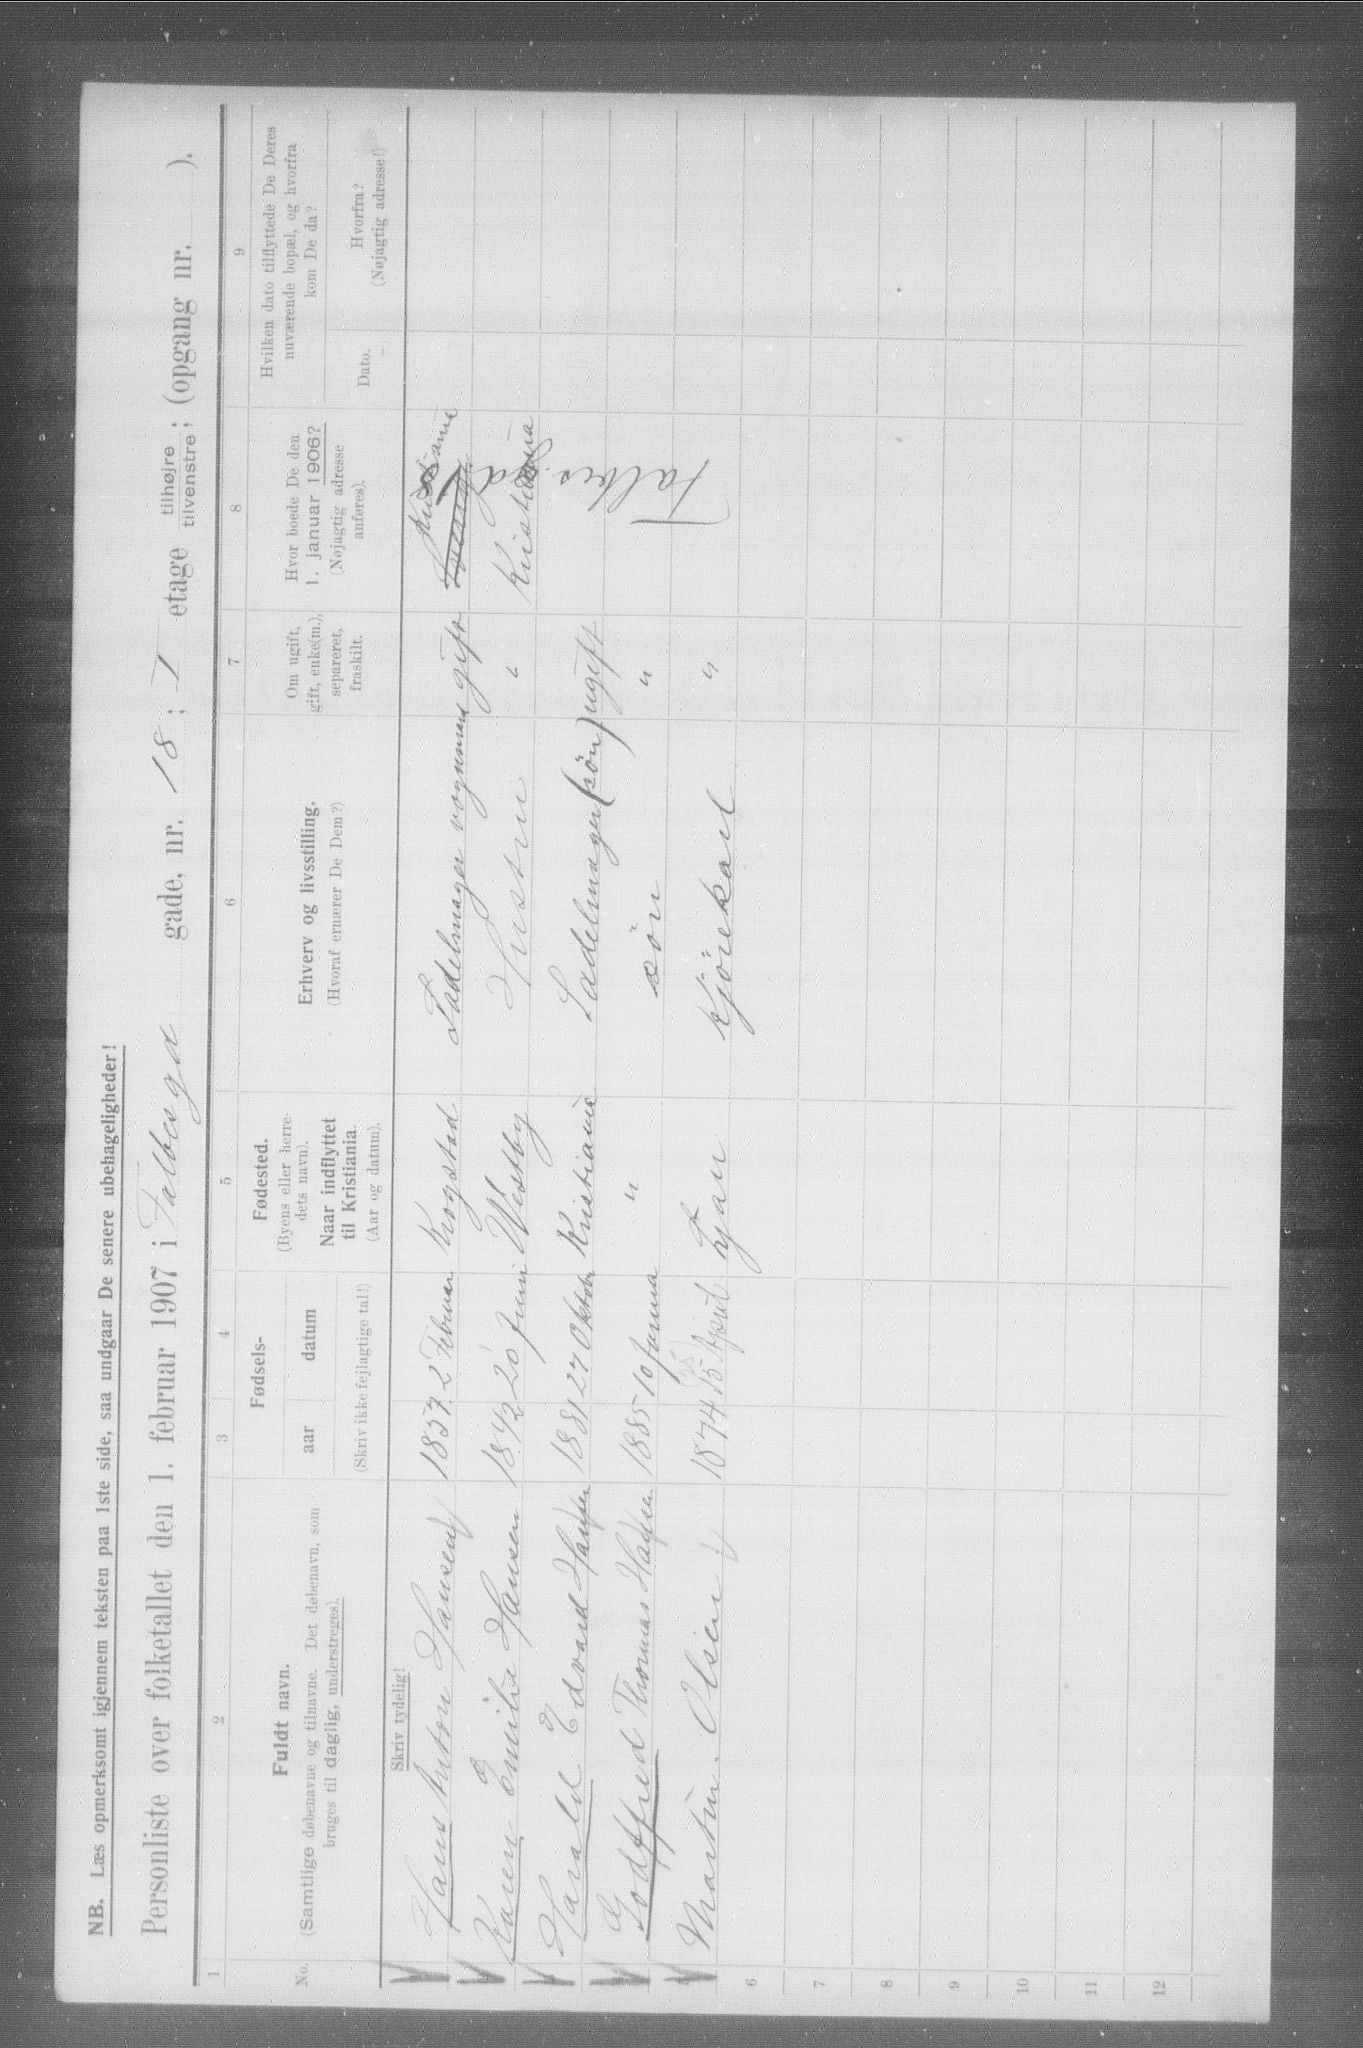 NB. Læs opmerksomt igjennem teksten paa 1ste side, saa undgaar De senere ubehageligheder!
Personliste over folketallet den 1. februar 1907 i Falbesgd gade, nr. 18 ; I etage tilhøjre ; tilvenstre ; (opgang nr. ).
1 2 3 4 5 6 7 8 9
No.
Fuldt navn.
(Samtlige døbenavne og tilnavne. Det døbenavn, som
bruges til daglig, understreges).
Fødsels-
aar datum
(Skriv ikke fejlagtige tal!)
Fødested.
(Byens eller herre-
dets navn).
Naar indflyttet
til Kristiania.
(Aar og datum).
Erhverv og livsstilling.
(Hvoraf ernærer De Dem?)
Om ugift,
gift, enke(m.),
separeret,
fraskilt.
Hvor boede De den
1. januar 1906?
(Nøjagtig adresse
anføres).
Hvilken dato tilflyttede De Deres
nuværende bopæl, og hvorfra
kom De da?
Dato.
Hvorfra?
(Nøjagtig adresse!)
Skriv tydelig!
Hans Anton Hansen 1857 2 Februar Krogstad Sadelmager vognmand gift
Karen Emilie Hansen 1842 20 Juni Westby Hustru " Kristiania
Harald Edvard Hansen 1881 27 Oktober Kristiania Sadelmager (søn) ugift
Godtfred Thomas Hansen 1885 10 Janua " søn "
5 Martin Olsen 1874 15 April kjørekarl "
Falbes gd
6
7
8
9
10
11
12